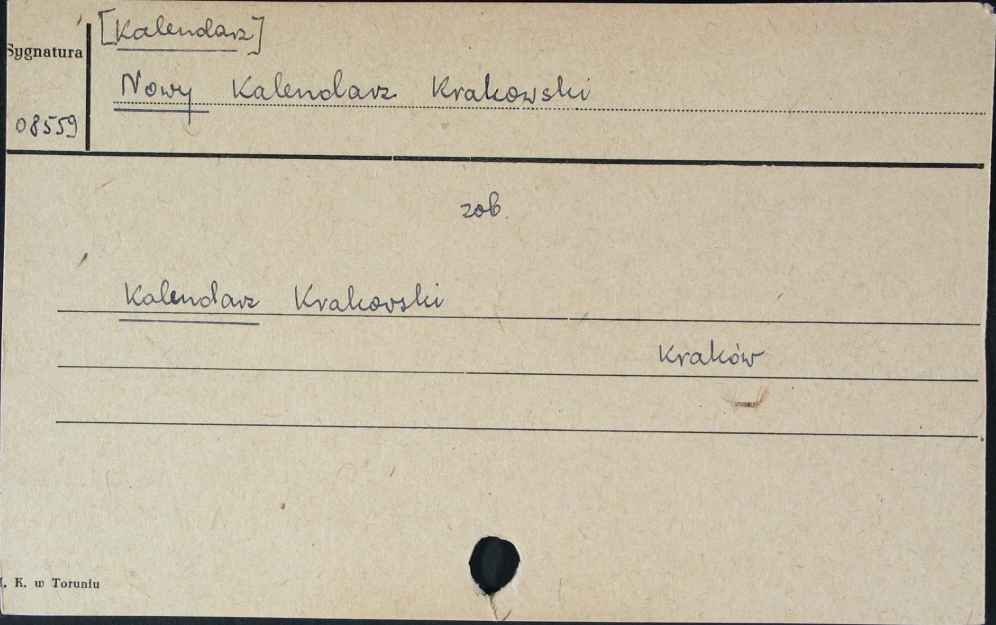 [Kalendarz]
Sygnatura
Nowy Kalendarz Krakowski
08559
zob.
Kalendarz Krakowski
Kraków
K. w Toruniu